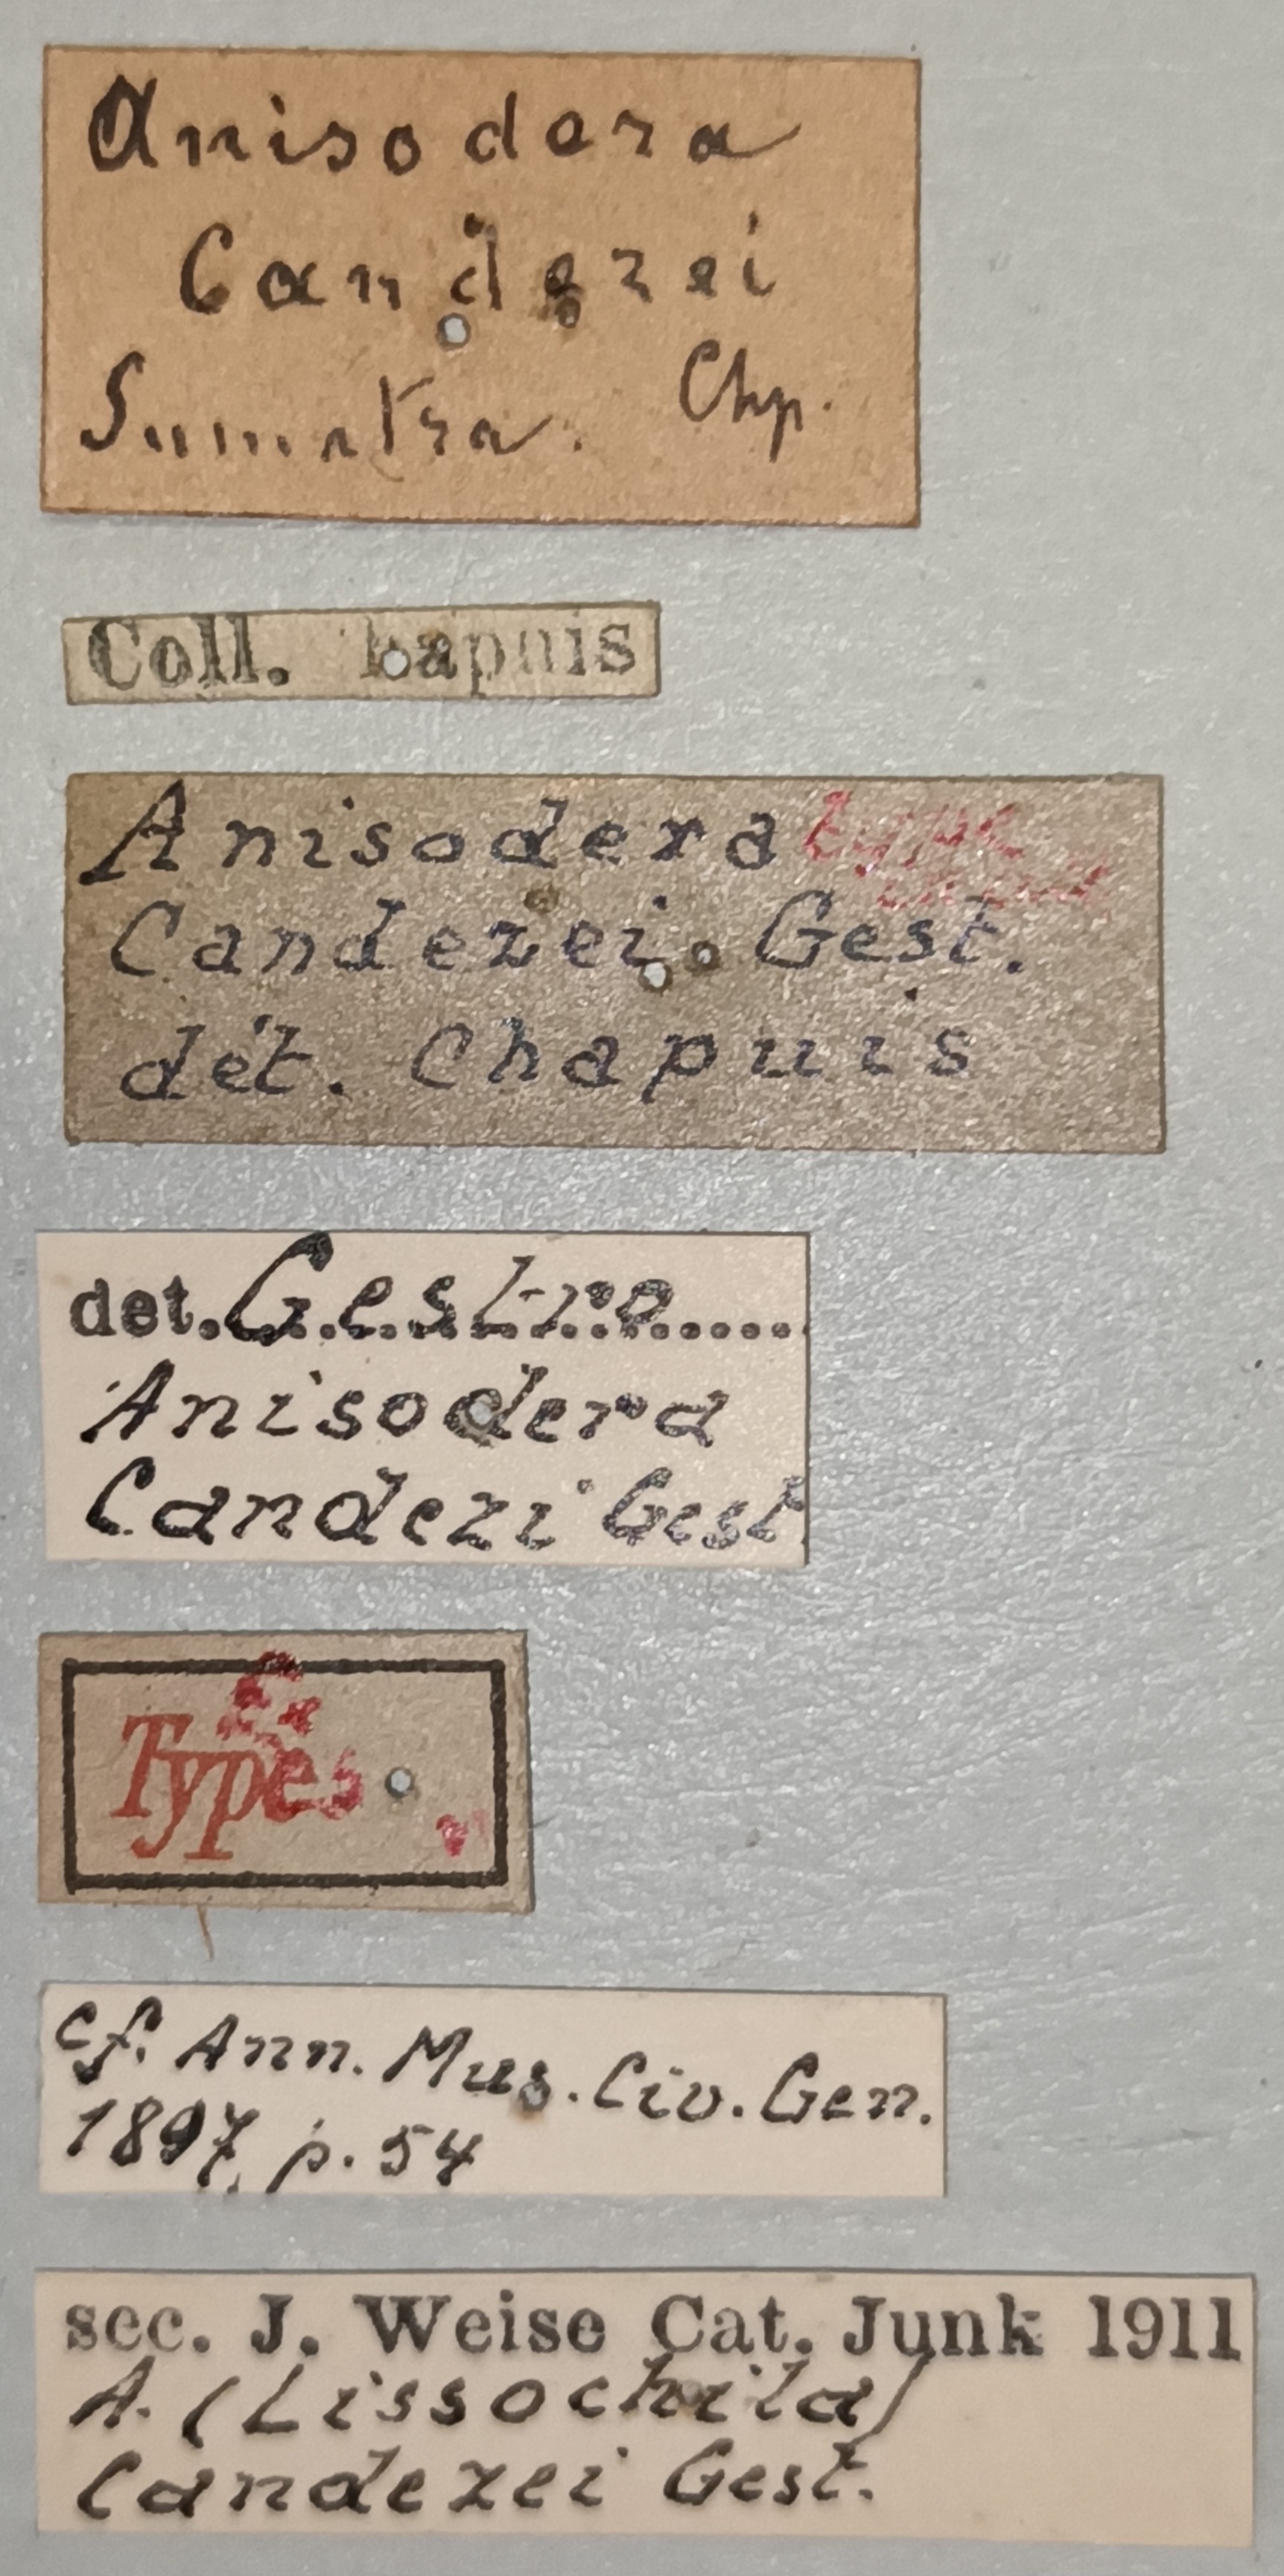 Anisodera
Candezei
Sumatra. Chp.
Coll. Chapuis
Anisodera type
Candezei. Gest.
dét. Chapuis
det. Gestro
Anisodera
Candezi Gest
Types
cf. Ann. Mus. Civ. Gen.
1897, p. 54
sec. J. Weise Cat. Junk 1911
A. (Lissochila)
Candezei Gest.